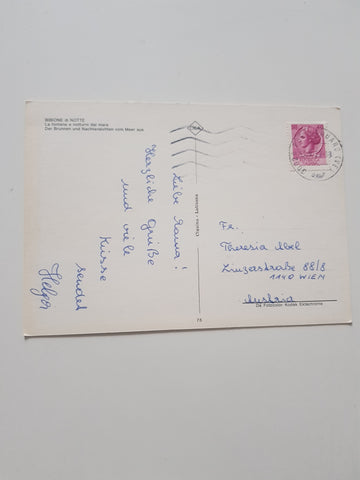 BIBIONE di NOTTE
La fontana e notturni dal mare
Der Brunnen und Nachtansichten vom Meer aus
Liebe Mama!
Herzliche Grüße
und viele
Küsse
sendet
Helga
Fr.
Theresia Abel
Linzerstraße 88/8
1140 WIEN
Austria
Da Fotocolor Kodak Ektachrome
75